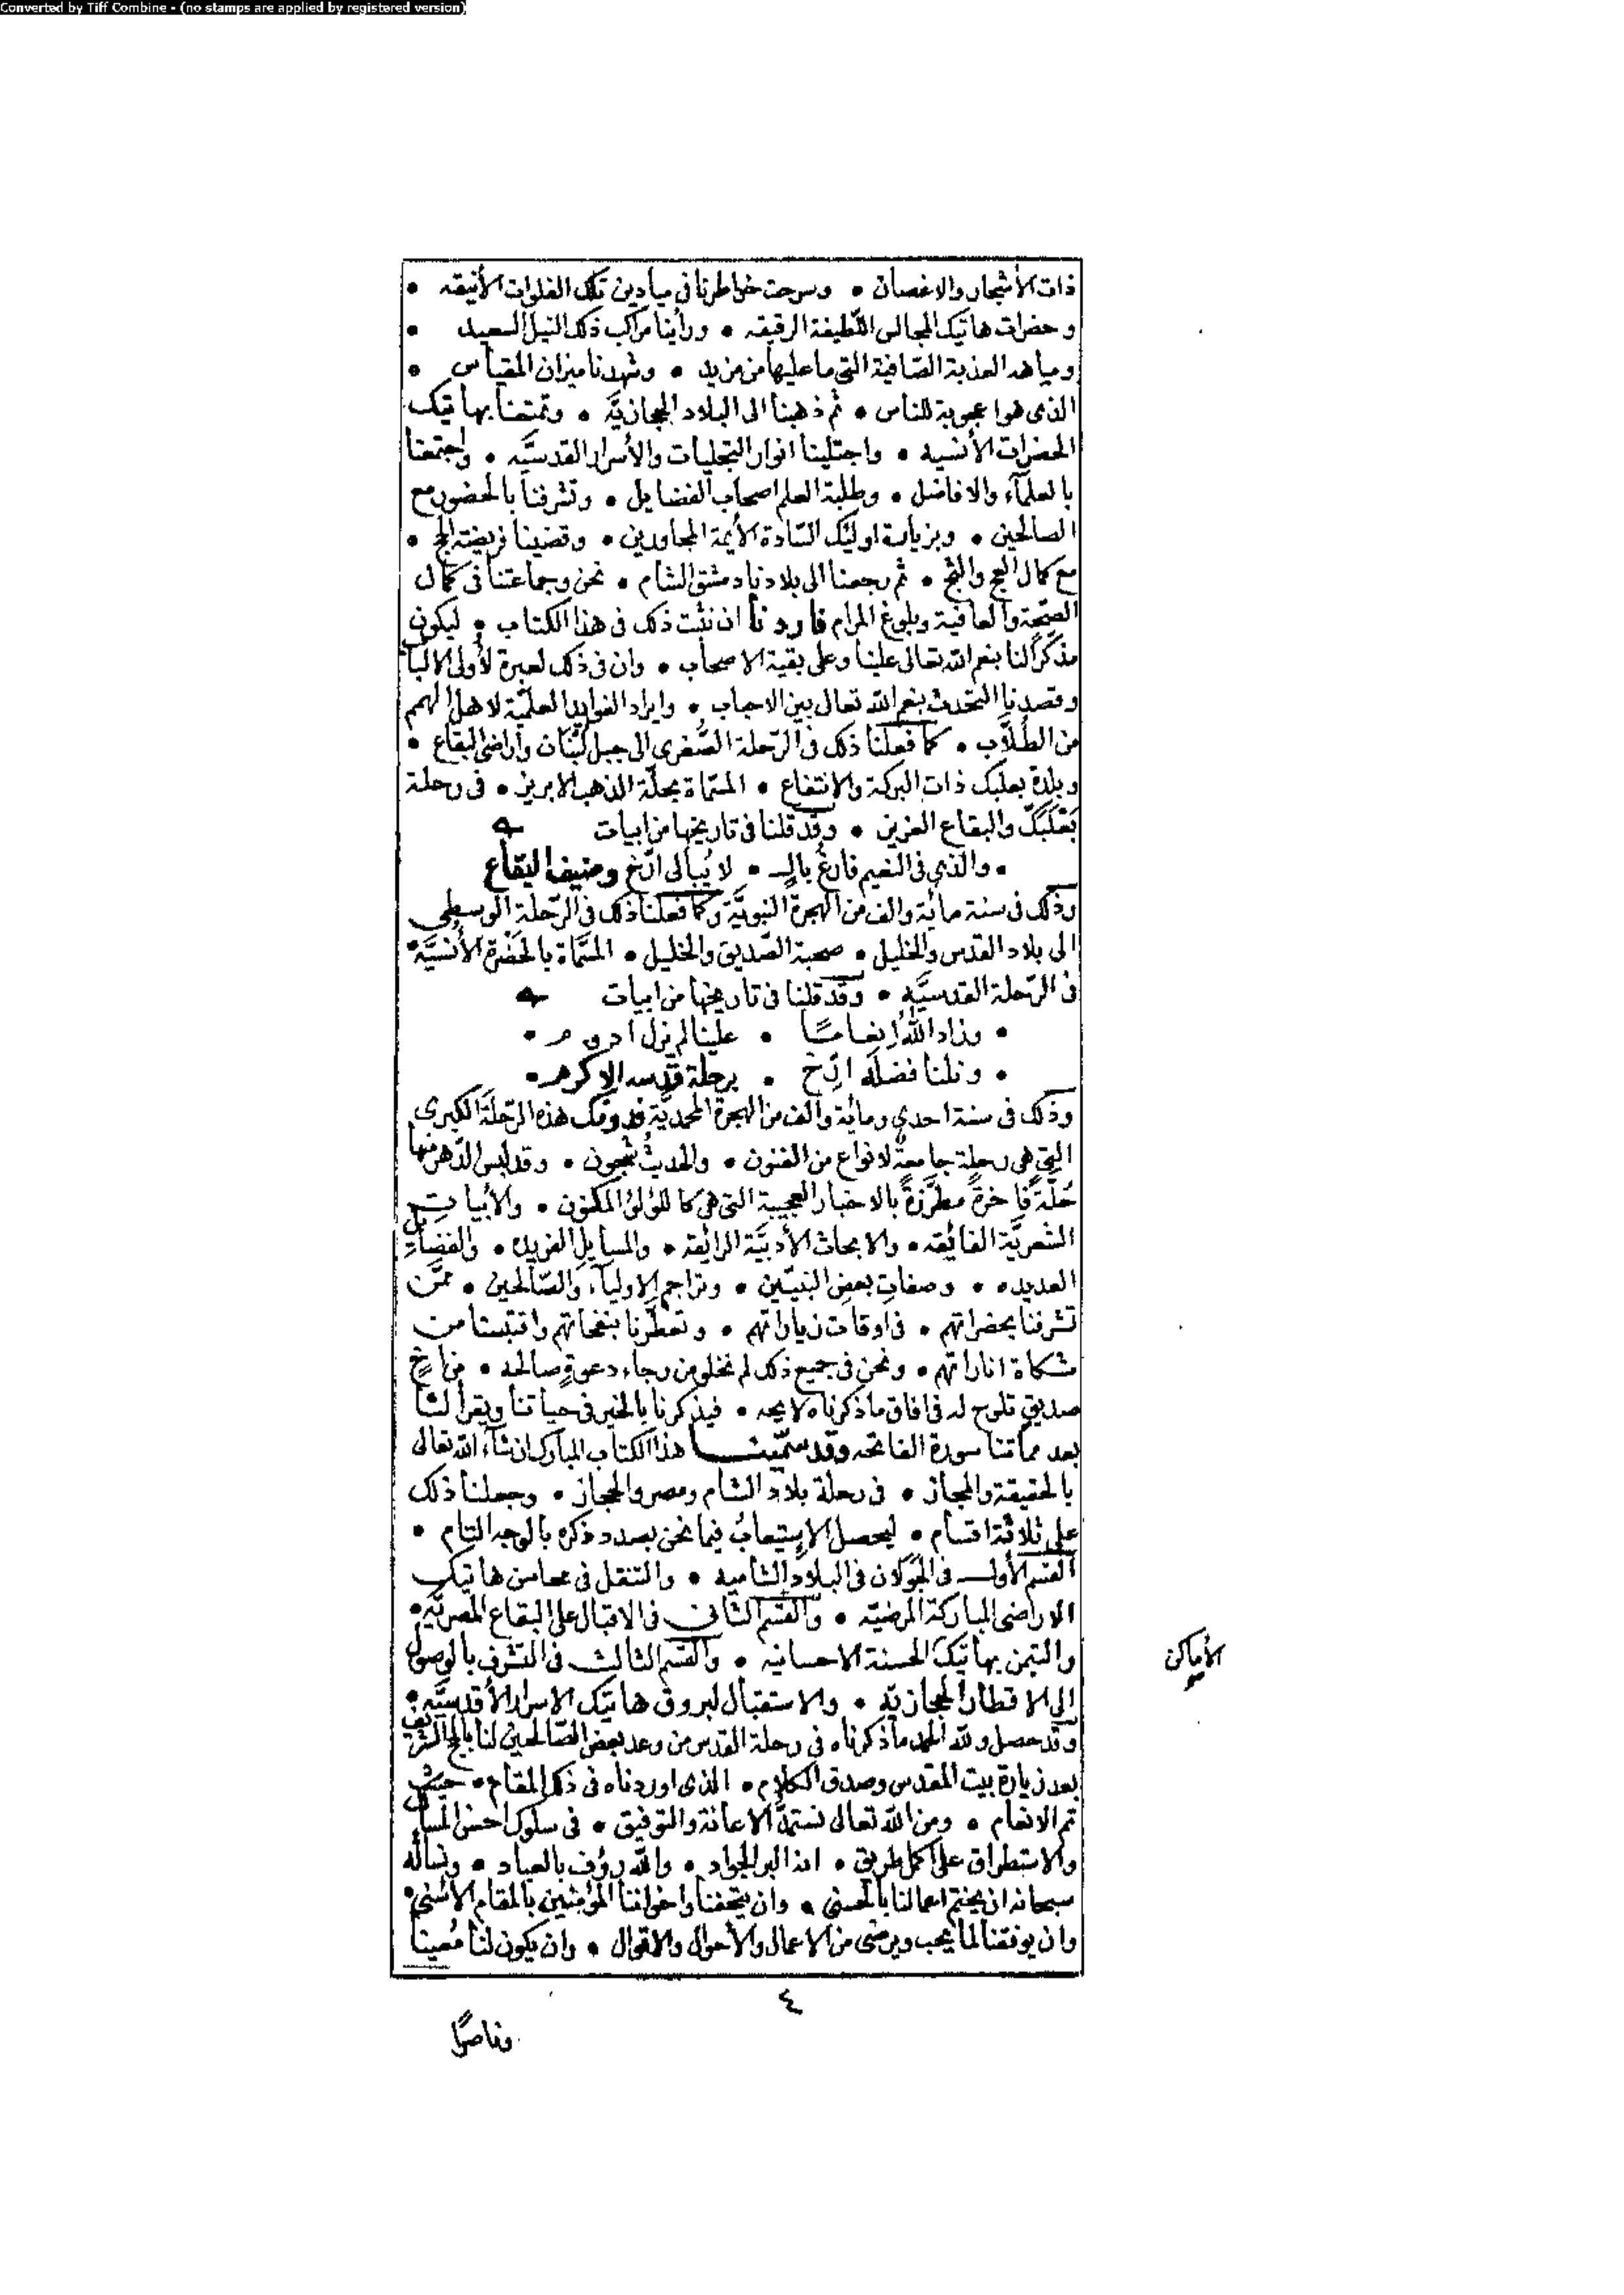 Converted by Tiff Combine - (no stamps are applied by registered version)
ذات الأشجار والاغصان • وسرحت خواطرنا فى ميادين تلك الفلوات الأنيقه •
وحضرات هاتيك المجالس اللّطيفة الرقيقه • ورأينا مراكب ذلك النيل السعيد •
ومياهه العذبة الصّافية التى ما عليها من مزيد • وشهدنا ميزان المقياس •
الذى هو اعجوبة للناس • ثم ذهبنا الى البلاد الحجازيّة • وتمتعنا بهاتيك
الحضرات الأنسيه • واجتلينا انوار التجليات والأسرار القدسيَّه • واجتمعنا
بالعلمآء والافاضل • وطلبة العلم اصحاب الفضايل • وتشرفنا بالحضور مع
الصالحين • وبزيارة اوليك السّادة الأيمة المجاورين • وقضينا فريضة الحج •
مع كمال العج والثج • ثم رجعنا الى بلادنا دمشق الشام • نحن وجماعتنا فى كمال
الصحّة والعافية وبلوغ المرام فاردنا ان نثبت ذلك فى هذا الكتاب • ليكون
مذكرًا لنا بنعم الله تعالى علينا وعلى بقية الاصحاب • وان فى ذلك لعبرة لأولى الالباب
وقصدنا التحدث بنعم الله تعالى بين الاحباب • وايراد الفوايد العلميّة لاهل الهمم
من الطُلَّاب • كما فعلنا ذلك فى الرّحلة الصُّغرى الى جبل لبْنان وأراضى البقاع •
وبلدة بعلبك ذات البركة والانتفاع • المسمّاة بحلّة الذهب الابريز • فى رحلة
بَعْلَبَكّ والبقاع العزيز • وقد قلنا فى تاريخها من ابيات
• والذى فى النعيم فارغ بالٍ • لا يُبالى ارّخ وضيف البقاع
وذلك فى سنة مائة والف من الهجرة النبويّة وكما فعلنا ذلك فى الرّحلة الوسطى
الى بلاد القدس والخليل • صحبة الصّديق والخليل • المسمَّاة بالحَضْرة الأُنسيَّة •
فى الرّحلة القدسيَّه • وقد قلنا فى تاريخها من ابيات
• وزاد اللهُ إنعامًا • علينا لم نزل
• ونلنا فضلَه ارّخ • برحلة قدسه الاكرم •
وذلك فى سنة احدى ومائة والف من الهجرة المحمديَّة فدونك هذه الرّحلَة الكبرى
التى هى رحلة جامعةٌ لانواع من الفنون • والحديثُ شجون • وقد لبس الدّهر منها
حُلَّةً فاخرةً مطرَّزةً بالاخبار العجيبة التى هى كاللؤلؤ المكنون • والأبياتِ
الشعريَّة الفائقه • والابحاث الأدبيَّة الرائقة • والمسايلِ الفريده • والفضايلِ
العديده • وصفاتِ بعض النبيّين • وتراجم الاوليآء والصّالحين • ممَّن
تشرفنا بحضراتهم • فى اوقات زياراتهم • وتعطّرنا بنفحاتهم واقتبسنا من
مشكاة اناراتهم • ونحن فى جميع ذلك لم نخلو من رجاء دعوةٍ صالحه • من اخٍ
صديقٍ تلوح له فى افاق ما ذكرناه لايحه • فيذكرنا بالخير فى حياتنا ويقرأ لنا
بعد مماتنا سورة الفاتحه وقد سمّيت هذا الكتاب المبارك ان شآء الله تعالى
بالحقيقة والمجاز • فى رحلة بلاد الشام ومصر والحجاز • وجعلنا ذلك
على ثلاثة اقسام • ليحصل الإستيعابُ فيما نحن بصدد ذكره بالوجه التام •
القسم الأول فى الجَوَلان فى البلاد الشاميه • والتنقل فى محاسن هاتيك
الاراضى المباركة المرضيّه • والقسم الثانى فى الاقبال على البقاع المصريّه •
والتيمن بهاتيك الحسنة الاحسانيه • والقسم الثالث فى التشرف بالوصول
الأماكن
الى الاقطار الحجازيّه • والاستقبال لبروق هاتيك الاسرار الأقدسيَّه •
وقد حصل ولله الحمد ما ذكرناه فى رحلة القدس من وعد بعض الصّالحين لنا بالحج الشريف
بعد زيارة بيت المقدس وصدق الكلام • الذى اوردناه فى ذلك المقام • حيث
تم الانعام • ومن الله تعالى نستمدّ الاعانة والتوفيق • فى سلوك احسن المسالك
والاستطراق على اكمل طريق • انه البر الجواد • والله رؤف بالعباد • ونسأله
سبحانه ان يختم اعمالنا بالحسنى • وان يتحفنا واخواننا المؤمنين بالمقام الاسنى •
وان يوفقنا لما يحب ويرضى من الاعمال والأحوال والاقوال • وان يكون لنا مُعينا
٤
وناصرًا